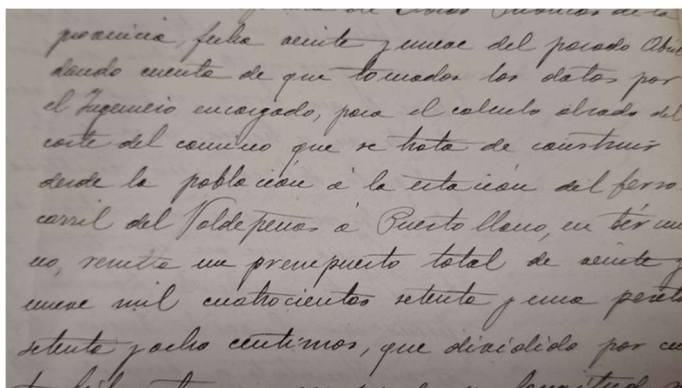 de Obras Públicas de la
provincia, fecha veinte y nueve del pasado Abril
dando cuenta de que tomados los datos por
el Ingeniero encargado, para el calculo alzado del
coste del camino que se trata de construir
desde la población á la estación del ferro
carril del Valdepeñas á Puertollano, en térmi
no, resulta un presupuesto total de veinte y
nueve mil cuatrocientas setenta y una peseta
setenta y ocho centimos, que dividido por cu